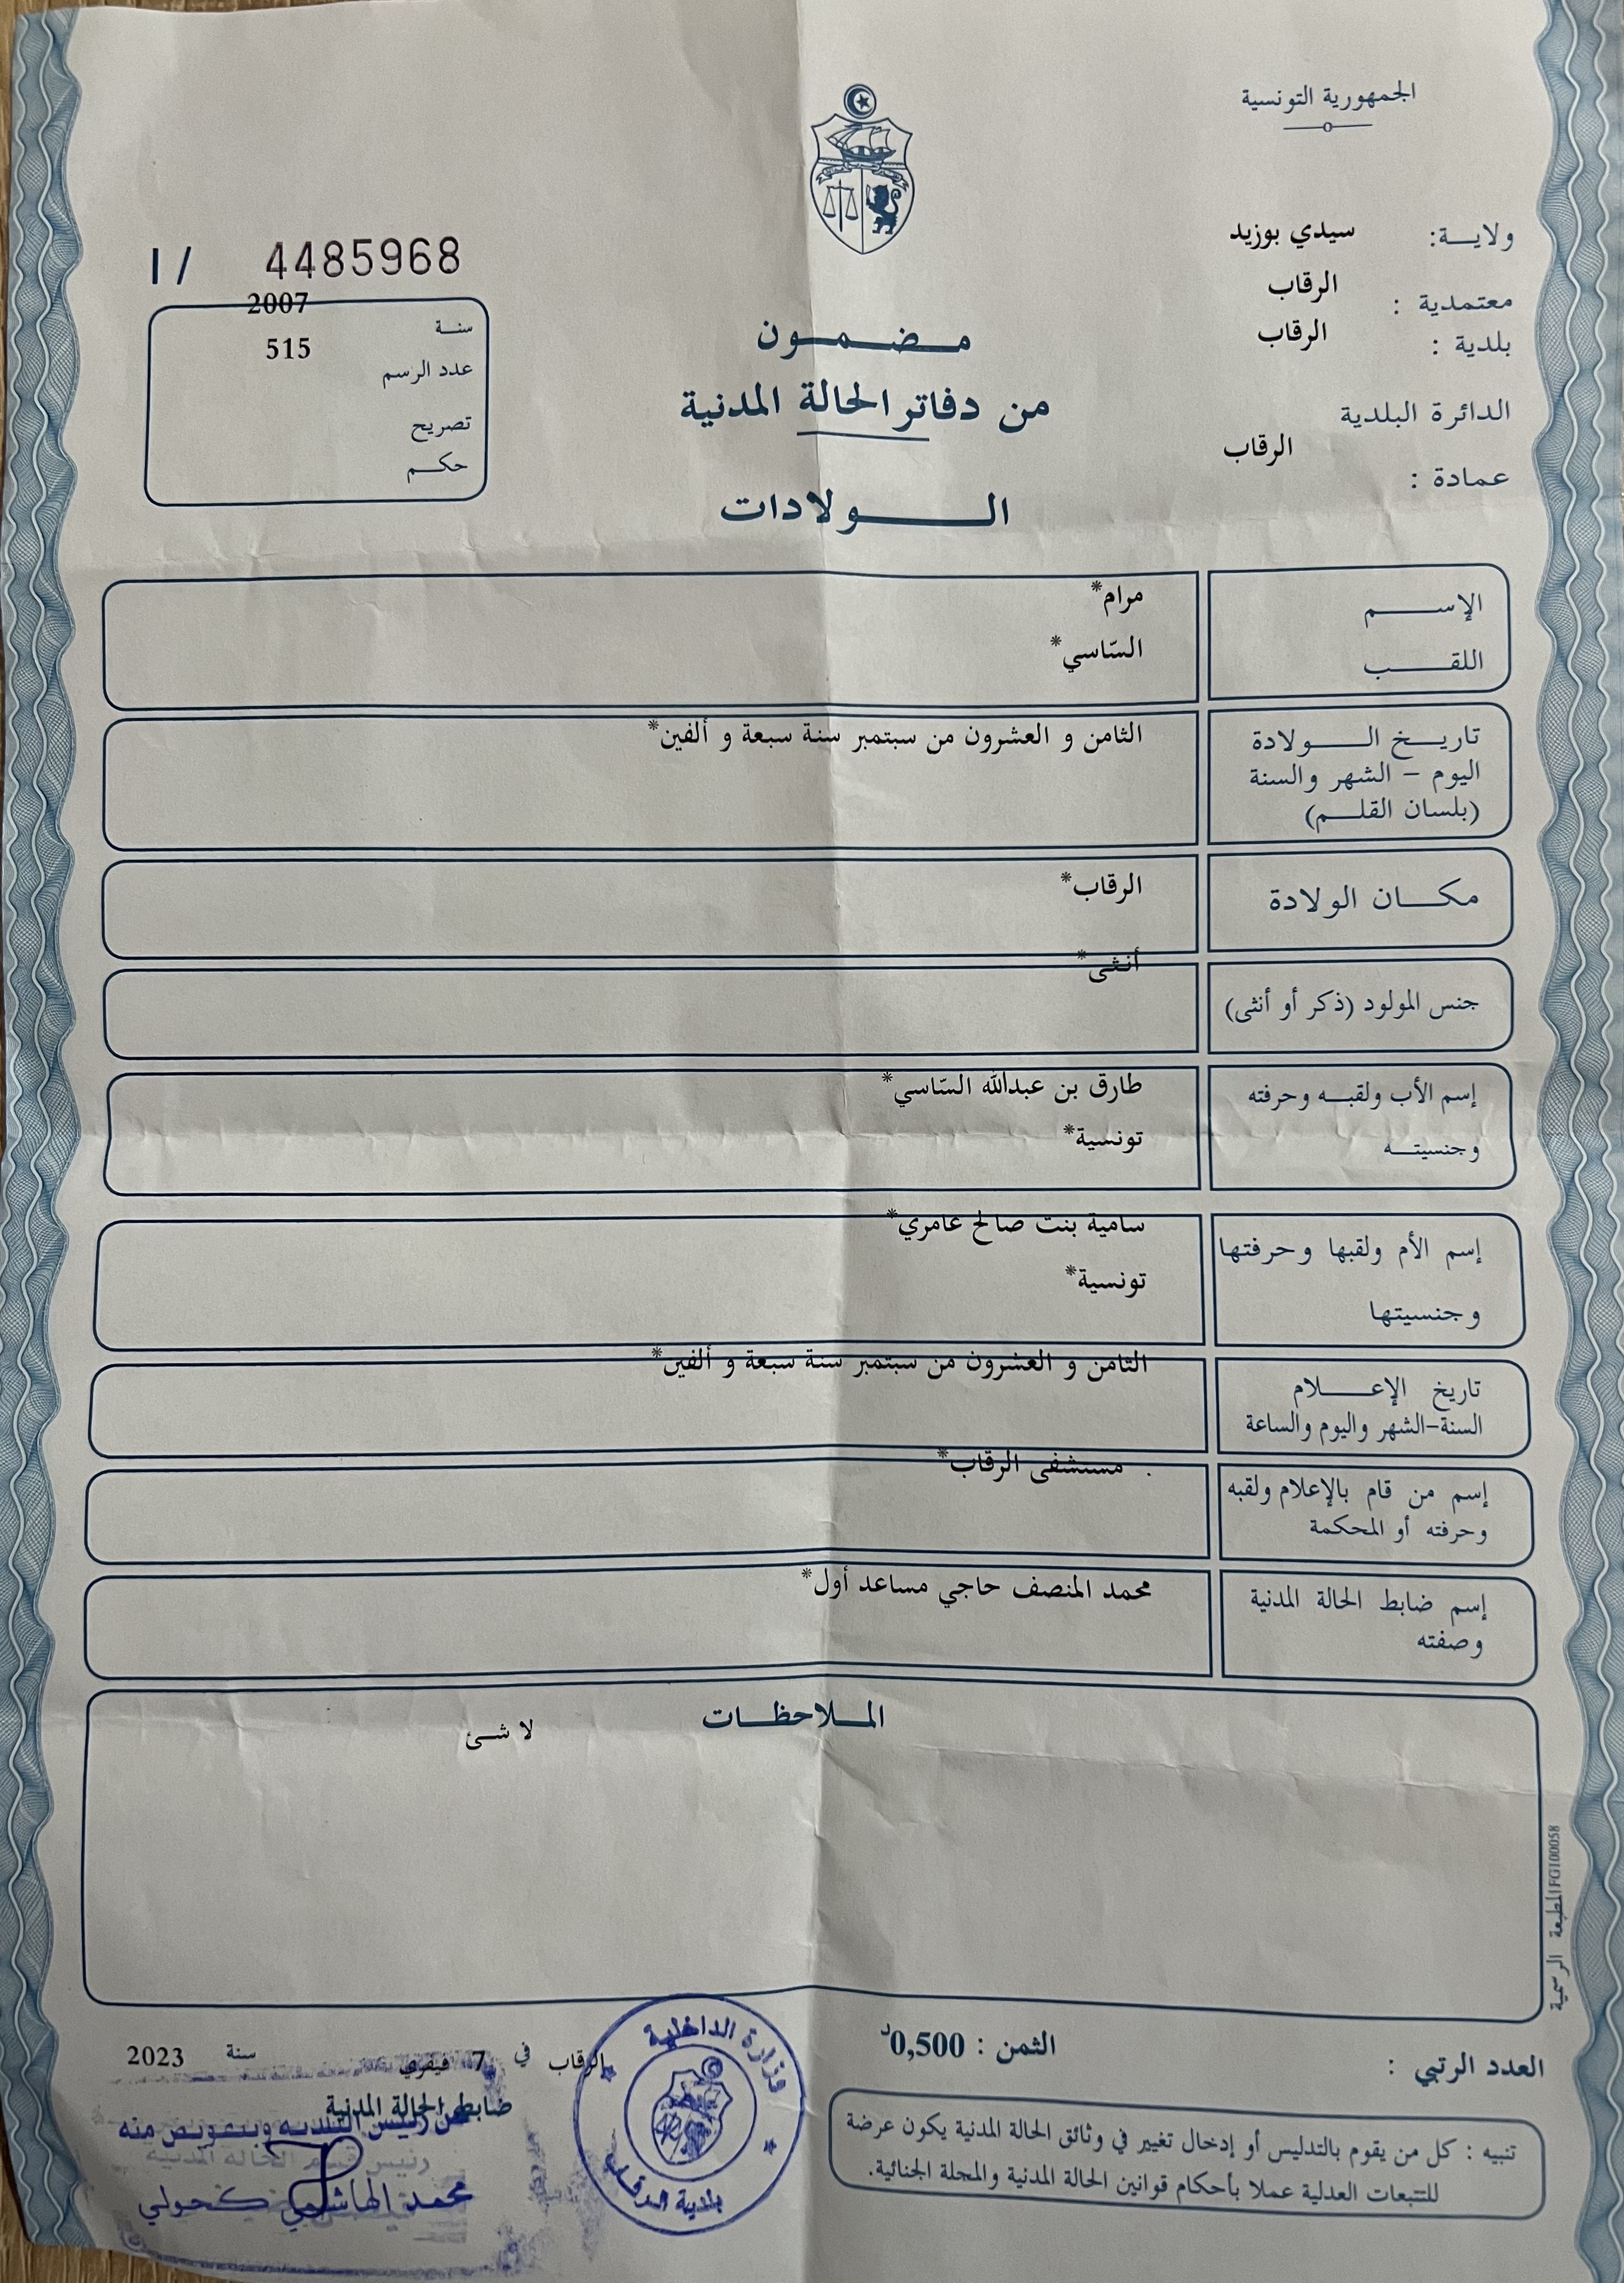 الجمهورية التونسية
ولايـــة: سيدي بوزيد
معتمدية : الرقاب
بلدية : الرقاب
الدائرة البلدية
عمادة : الرقاب
مـضـمـون
من دفاتر الحالة المدنية
الـــولادات
1/ 4485968
سنـة 2007
عدد الرسم 515
تصريح
حكـم
الإســـم مرام*
اللقـــب السّاسي*
تاريـخ الـــولادة الثامن و العشرون من سبتمبر سنة سبعة و ألفين*
اليوم – الشهر والسنة
(بلسان القلـم)
مكـــان الولادة الرقاب*
جنس المولود (ذكر أو أنثى) أنثى*
إسم الأب ولقبـه وحرفته طارق بن عبدالله السّاسي*
وجنسيتـــه تونسية*
إسم الأم ولقبها وحرفتها سامية بنت صالح عامري*
وجنسيتها تونسية*
تاريخ الإعـــلام الثامن و العشرون من سبتمبر سنة سبعة و ألفين*
السنة-الشهر واليوم والساعة
إسم من قام بالإعلام ولقبه . مستشفى الرقاب*
وحرفته أو المحكمة
إسم ضابط الحالة المدنية محمد المنصف حاجي مساعد أول*
وصفته
المـلاحظـات
لا شئ
المطبعة الرسمية IFG100058
العدد الرتبي :
الثمن : 0,500د
تنبيه : كل من يقوم بالتدليس أو إدخال تغيير في وثائق الحالة المدنية يكون عرضة
للتتبعات العدلية عملا بأحكام قوانين الحالة المدنية والمجلة الجنائية.
الرقاب في 7 فيفري سنة 2023
ضابط الحالة المدنية
عن رئيس البلدية وبتفويض منه
رئيس قسم الحالة المدنية
محمد الهاشمي كحولي
وزارة الداخلية
بلدية الرقاب